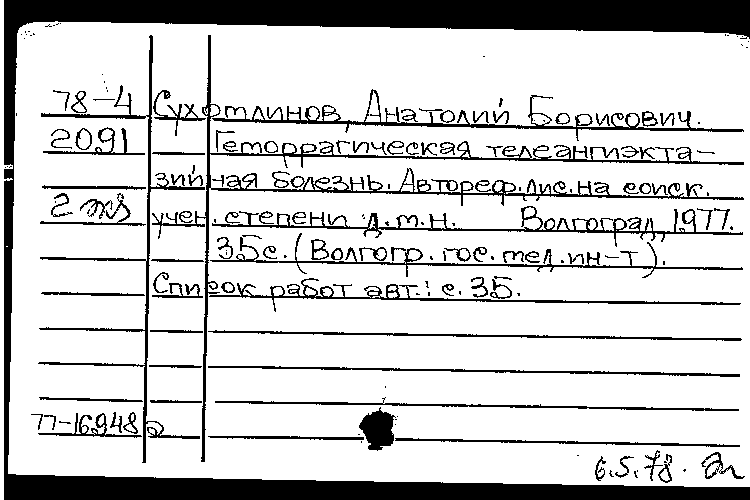 78-4 Сухотлинов, Анатолий Борисович.
2091 Геморрагическая телеангиэкта-
зийная болезнь. Автореф. дис. на соиск.
2 экз учен. степени д.м.н. Волгоград, 1977.
35с. (Волгогр. гос. мед. ин-т).
Список работ авт.: с. 35.
77-16948
6.5.78.